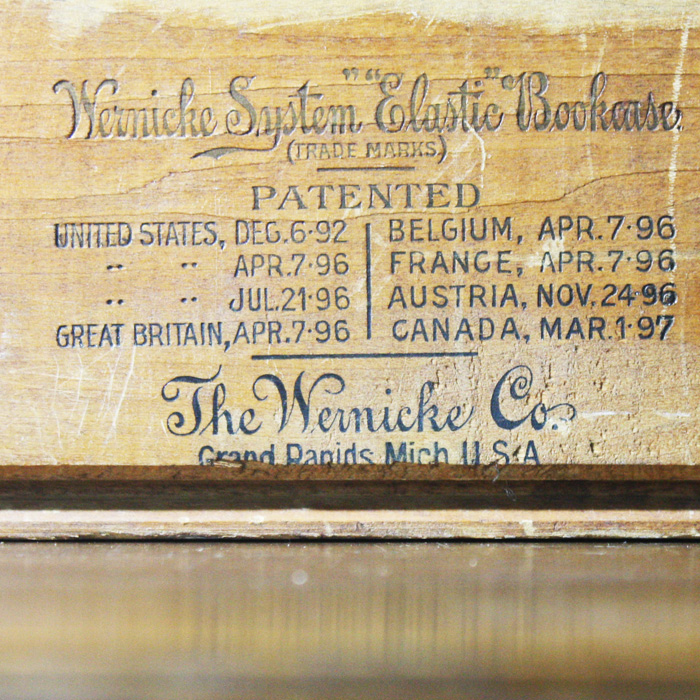 Wernicke System" "Elastic" Bookcase.
(TRADE MARKS)
PATENTED
UNITED STATES, DEC.6·92
" " APR.7·96
" " JUL.21·96
GREAT BRITAIN, APR.7·96
BELGIUM, APR.7·96
FRANCE, APR.7·96
AUSTRIA, NOV.24·96
CANADA, MAR.1·97
The Wernicke Co.
Grand Rapids Mich U.S.A